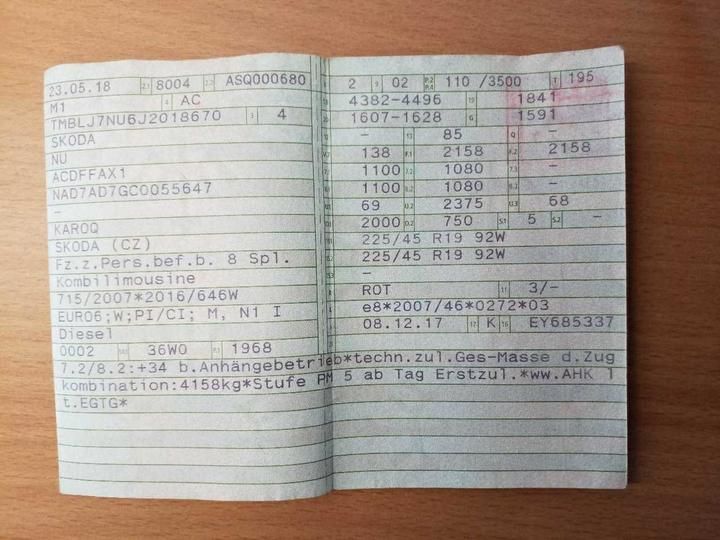 23.05.18 2.1 8004 2.2 ASQ000680
M1 4 AC
TMBLJ7NU6J2018670 3 4
SKODA
NU
ACDFFAX1
NAD7AD7GC0055647
-
KAROQ
SKODA (CZ)
Fz.z.Pers.bef.b. 8 Spl.
Kombilimousine
715/2007*2016/646W
EURO6;W;PI/CI; M, N1 I
Diesel
0002 36W0 P.1 1968
2 9 02 P.2 P.4 110 /3500 T 195
18 4382-4496 19 1841
20 1607-1628 G 1591
- 13 85 Q -
138 F.1 2158 F.2 2158
1100 7.2 1080 7.3 -
1100 8.2 1080 8.3 -
69 U.2 2375 U.3 68
2000 O.2 750 S.1 5 S.2 -
225/45 R19 92W
225/45 R19 92W
-
ROT 11 3/-
e8*2007/46*0272*03
08.12.17 17 K 16 EY685337
7.2/8.2:+34 b.Anhängebetrieb*techn.zul.Ges-Masse d.Zug
kombination:4158kg*Stufe PM 5 ab Tag Erstzul.*ww.AHK l
t.EGTG*